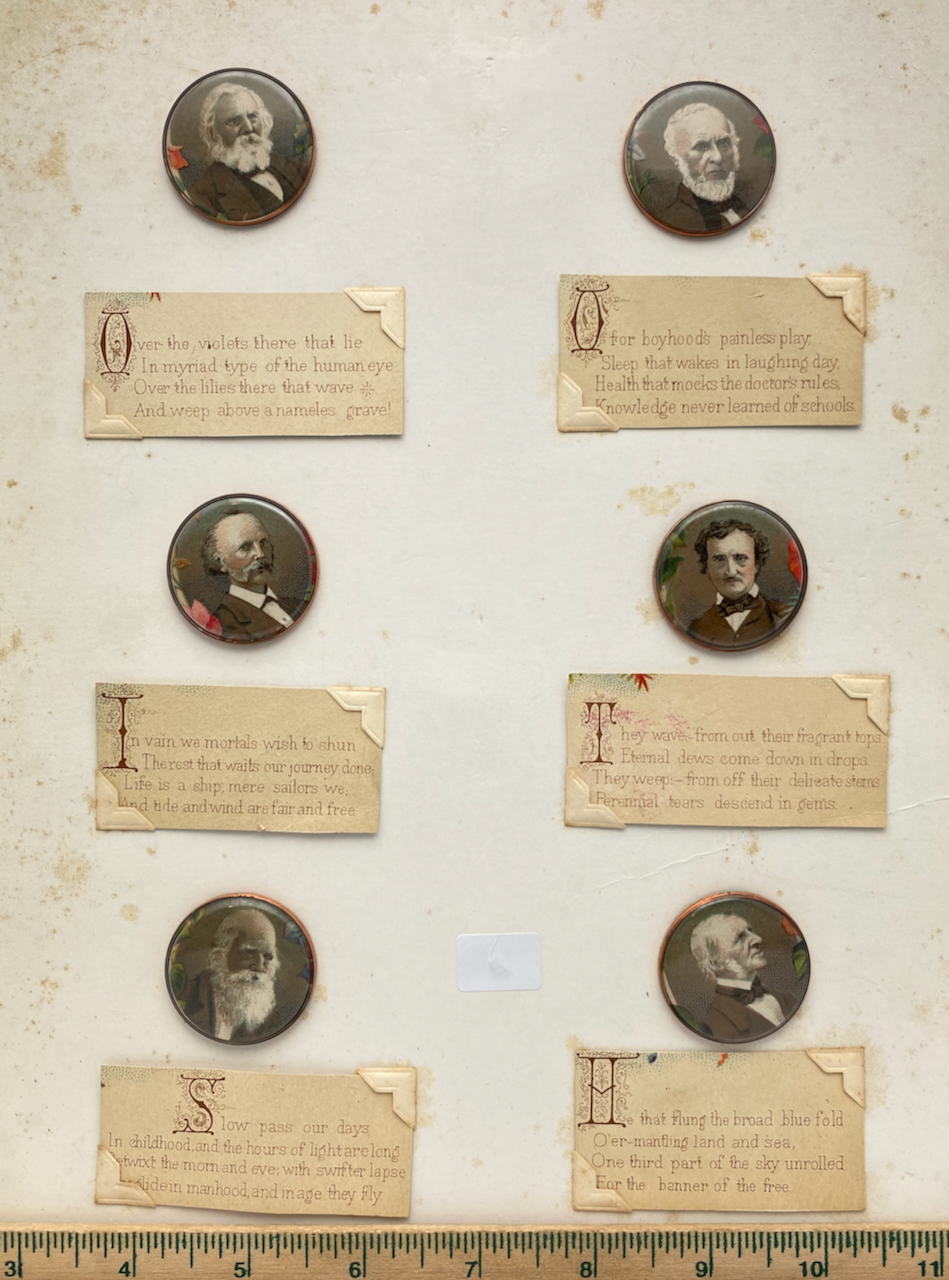 Over the violets there that lie
In myriad type of the human eye
Over the lilies there that wave
And weep above a nameles grave!
O for boyhood's painless play;
Sleep that wakes in laughing day,
Health that mocks the doctor's rules,
Knowledge never learned of schools.
In vain we mortals wish to shun
The rest that waits our journey done;
Life is a ship; mere sailors we,
And tide and wind are fair and free
They wave:-from out their fragrant tops
Eternal dews come down in drops.
They weep:-from off their delicate stems
Perennial tears descend in gems.
Slow pass our days
In childhood, and the hours of light are long
Betwixt the morn and eve; with swifter lapse
glide in manhood, and in age they fly
He that flung the broad blue fold
O'er-mantling land and sea,
One third part of the sky unrolled
For the banner of the free.
3 4 5 6 7 8 9 10 11